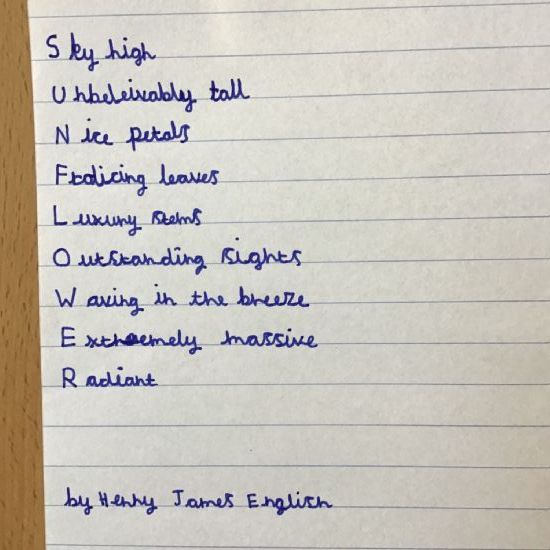 Sky high
Unbeleivably tall
Nice petals
Frolicing leaves
Luxury stems
Outstanding sights
Waving in the breeze
Extremely massive
Radiant
by Henry James English